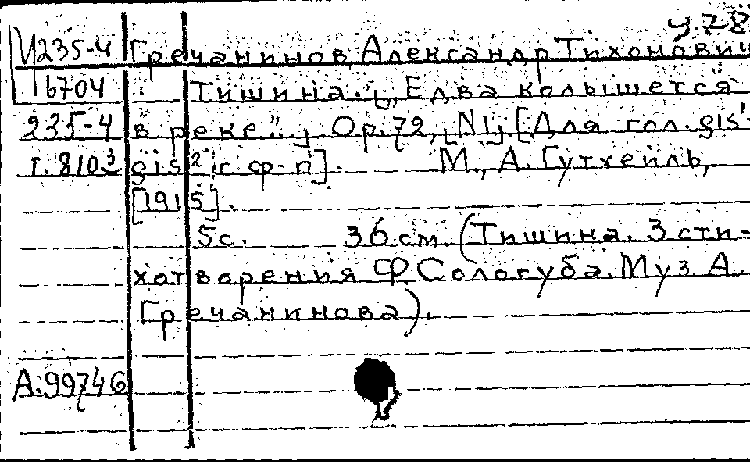 у.78
И235-4 Гречанинов, Александр Тихонович
16704 Тишина. „Едва колышется
235-4 в реке." Ор.72, N1, [Для гол. gis¹-
т. 8103 gis² с ф-п]. М., А. Гутхейль,
[1915].
5с. 36см. (Тишина. 3 сти-
хотворения Ф Сологуба. Муз А.
Гречанинова).
А.99746